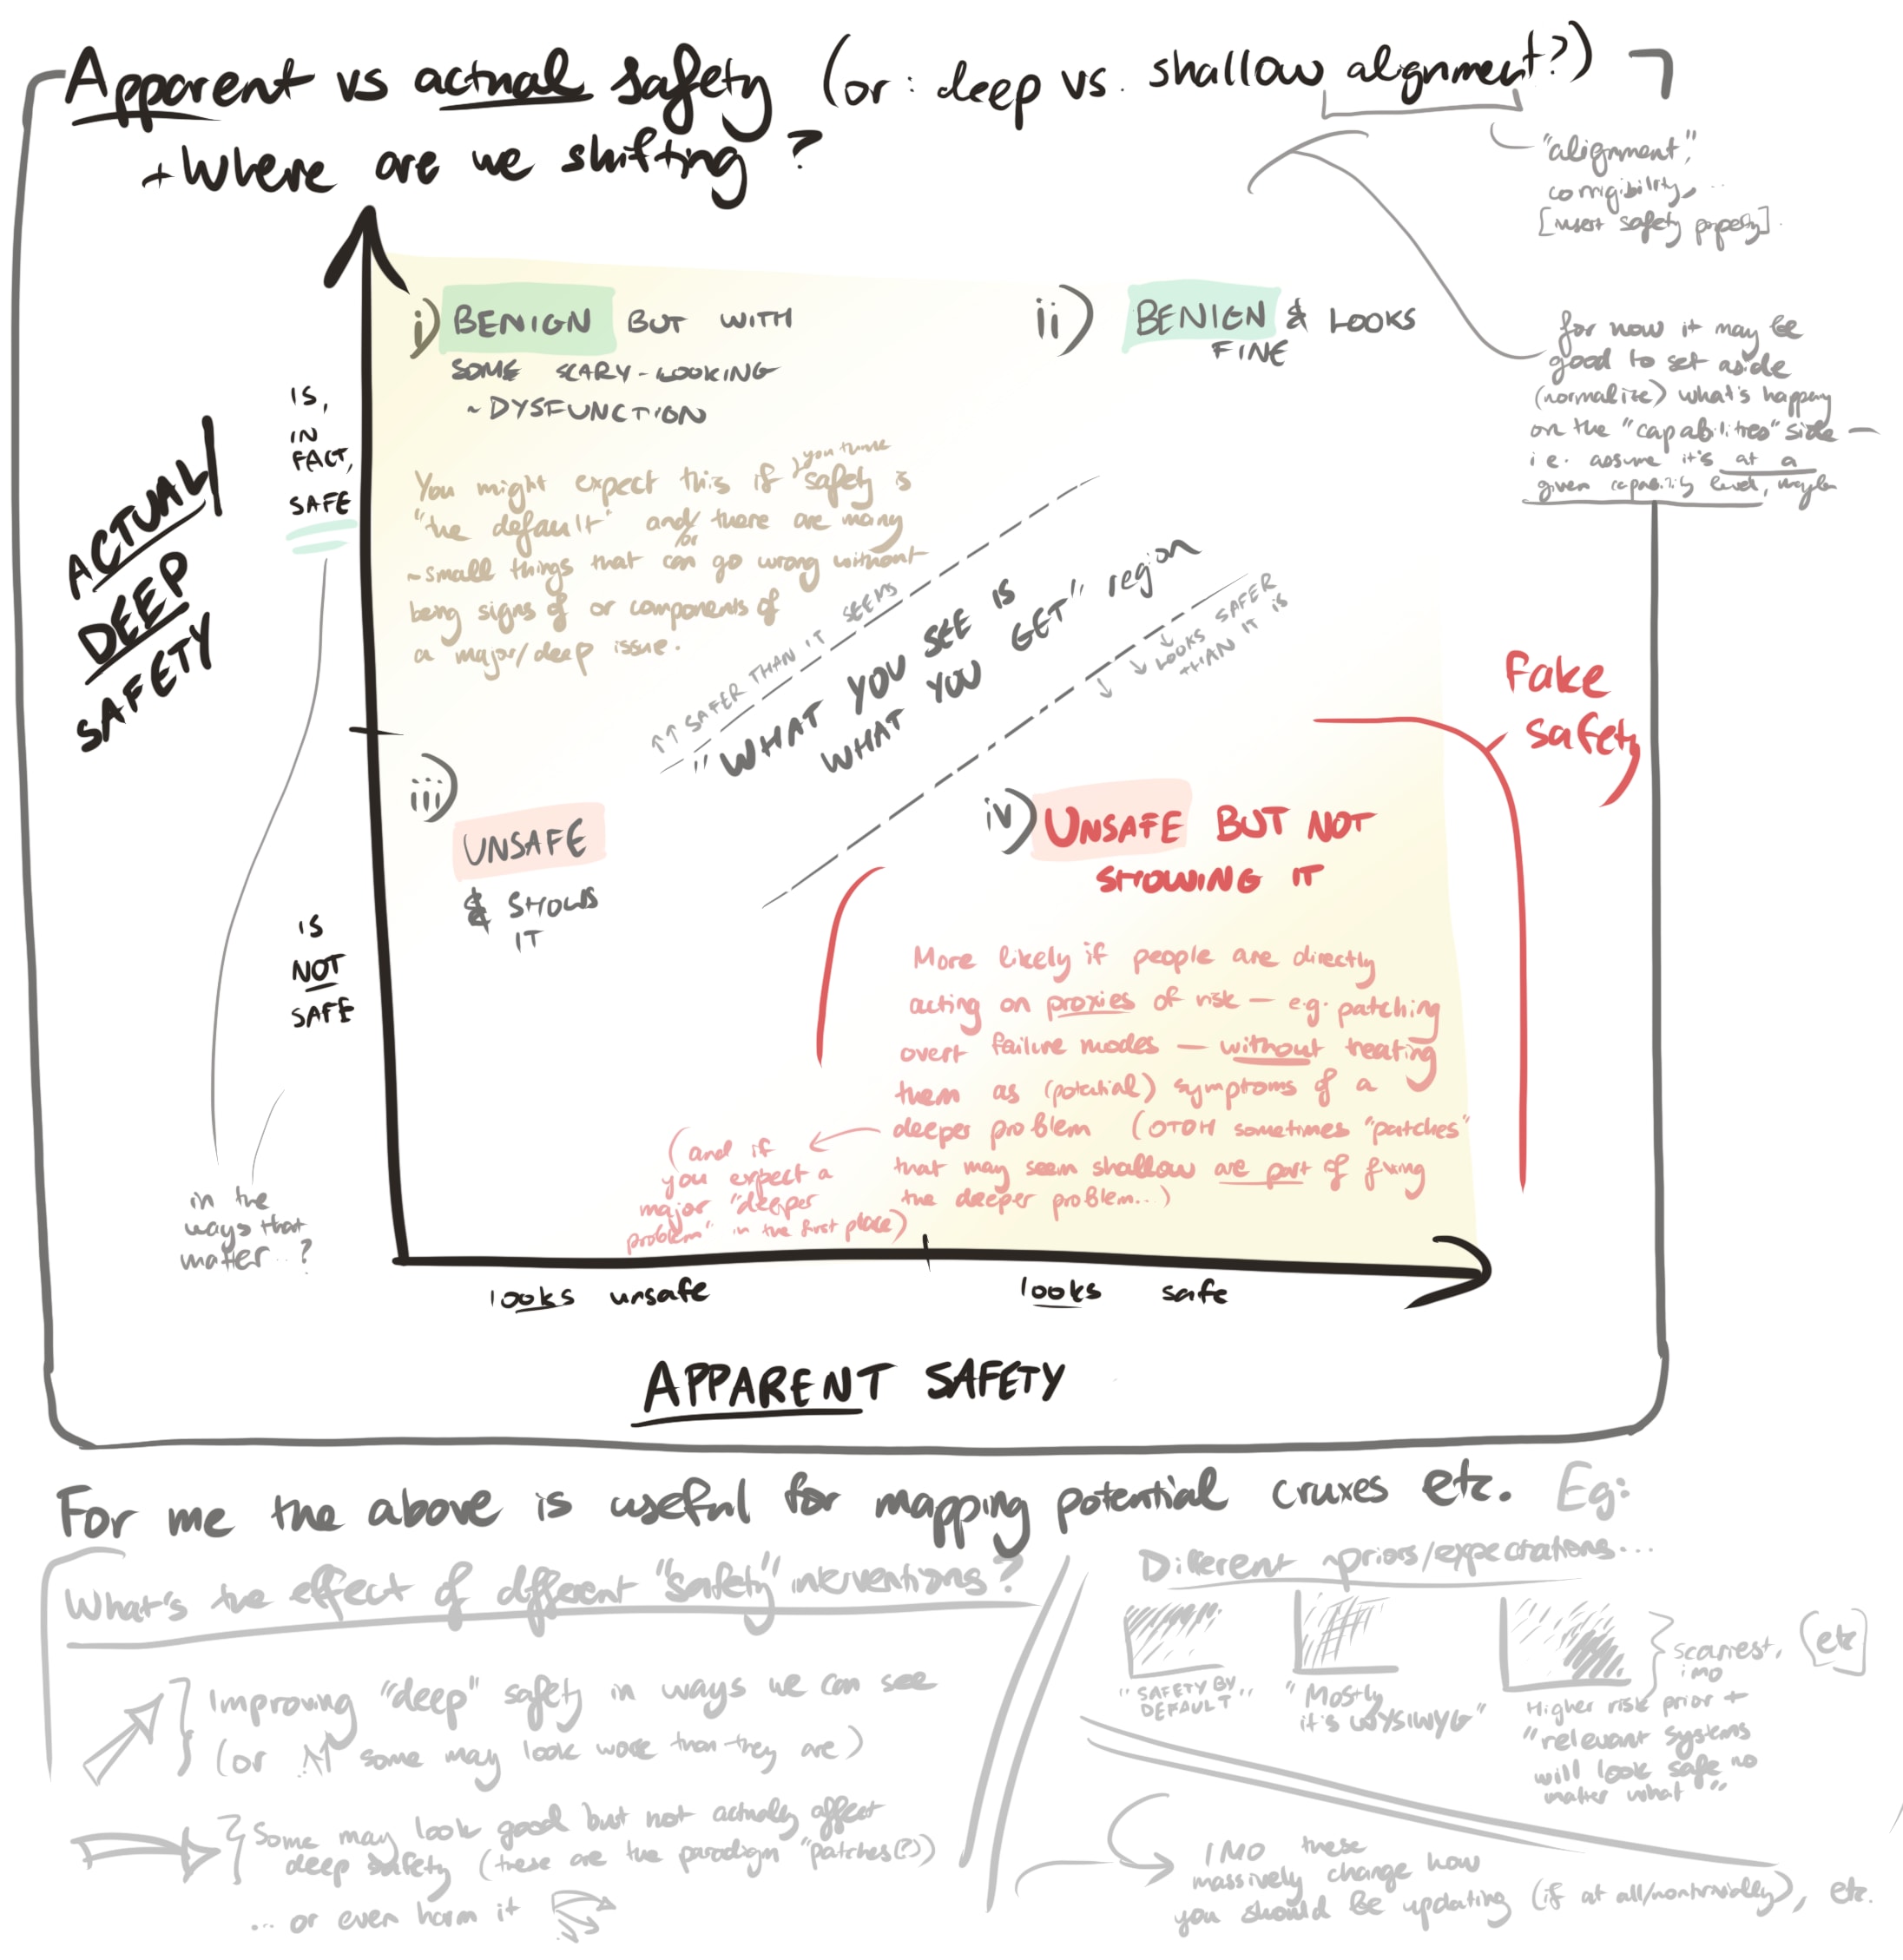 Apparent vs actual safety (or: deep vs. shallow alignment?)
+ Where are we shifting?
"alignment,"
corrigibility, ...
[insert safety property]
for now it may be
good to set aside
(normalize) what's happening
on the "capabilities" side —
i.e. assume it's at a
given capability level, maybe
ACTUAL/
DEEP
SAFETY
IS,
IN
FACT,
SAFE
IS
NOT
SAFE
in the
ways that
matter...?
i) BENIGN BUT WITH
SOME SCARY-LOOKING
~DYSFUNCTION
You might expect this if you think safety is
"the default" and/or there are many
~small things that can go wrong without
being signs of or components of
a major/deep issue.
ii) BENIGN & LOOKS
FINE
↑↑ SAFER THAN IT SEEMS
"WHAT YOU SEE IS
WHAT YOU GET" region
↓ ↓ ↓ LOOKS SAFER
THAN IT IS
iii)
UNSAFE
& SHOWS
IT
iv) UNSAFE BUT NOT
SHOWING IT
Fake
safety
More likely if people are directly
acting on proxies of risk — e.g. patching
overt failure modes — without treating
them as (potential) symptoms of a
deeper problem (OTOH sometimes "patches"
that may seem shallow are part of fixing
the deeper problem...)
(and if
you expect a
major "deeper
problem" in the first place)
looks unsafe
looks safe
APPARENT SAFETY
For me the above is useful for mapping potential cruxes etc. Eg:
What's the effect of different "safety" interventions?
Improving "deep" safety in ways we can see
(or some may look worse than they are)
Some may look good but not actually affect
deep safety (these are the paradigm "patches(?)")
... or even harm it
Different ~priors/expectations...
"SAFETY BY
DEFAULT"
"Mostly
it's WYSIWYG"
Higher risk prior +
"relevant systems
will look safe no
matter what"
scariest,
imo
etc
IMO these
massively change how
you should be updating (if at all/nontrivially), etc.